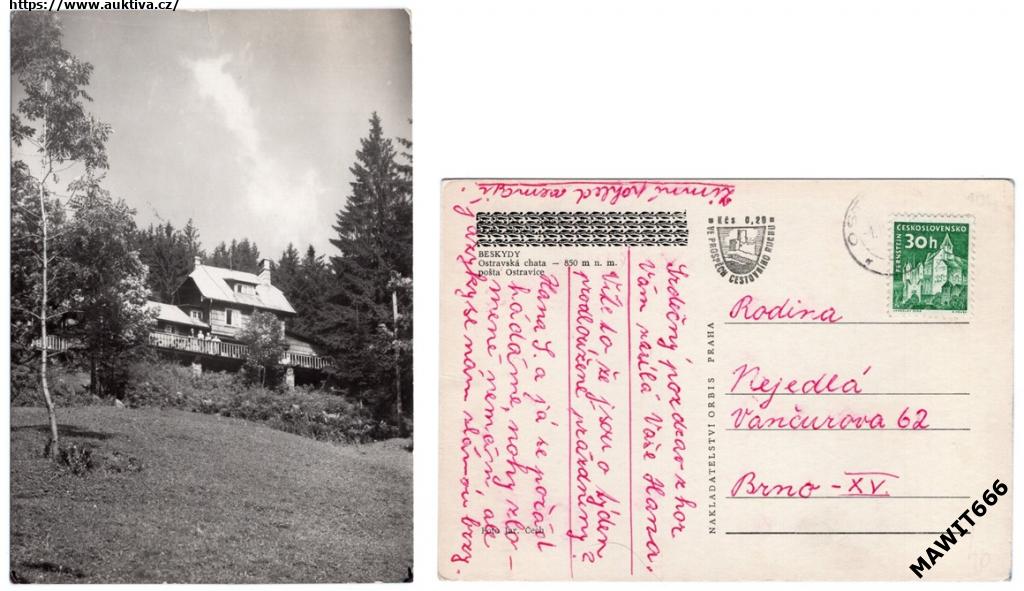 https://www.auktiva.cz/
BESKYDY
Ostravská chata — 850 m n. m.
pošta Ostravice
Srdečný pozdrav z hor
Vám posílá Vaše Hana.
Víte to, že jsou o týden
prodloužené prázdniny?
Hana S. a já se pořád
hádáme, nohy zlo-
mené nemám, ale
jazyky se nám zlámou brzy.
Zimní pohled nemají.
Foto Jar. Čech
NAKLADATELSTVÍ ORBIS PRAHA
Kčs 0,20
VE PROSPĚCH CESTOVNÍHO RUCHU
ČESKOSLOVENSKO
30h
PERNŠTEJN
Rodina
Nejedlá
Vančurova 62
Brno - XV.
MAWIT666